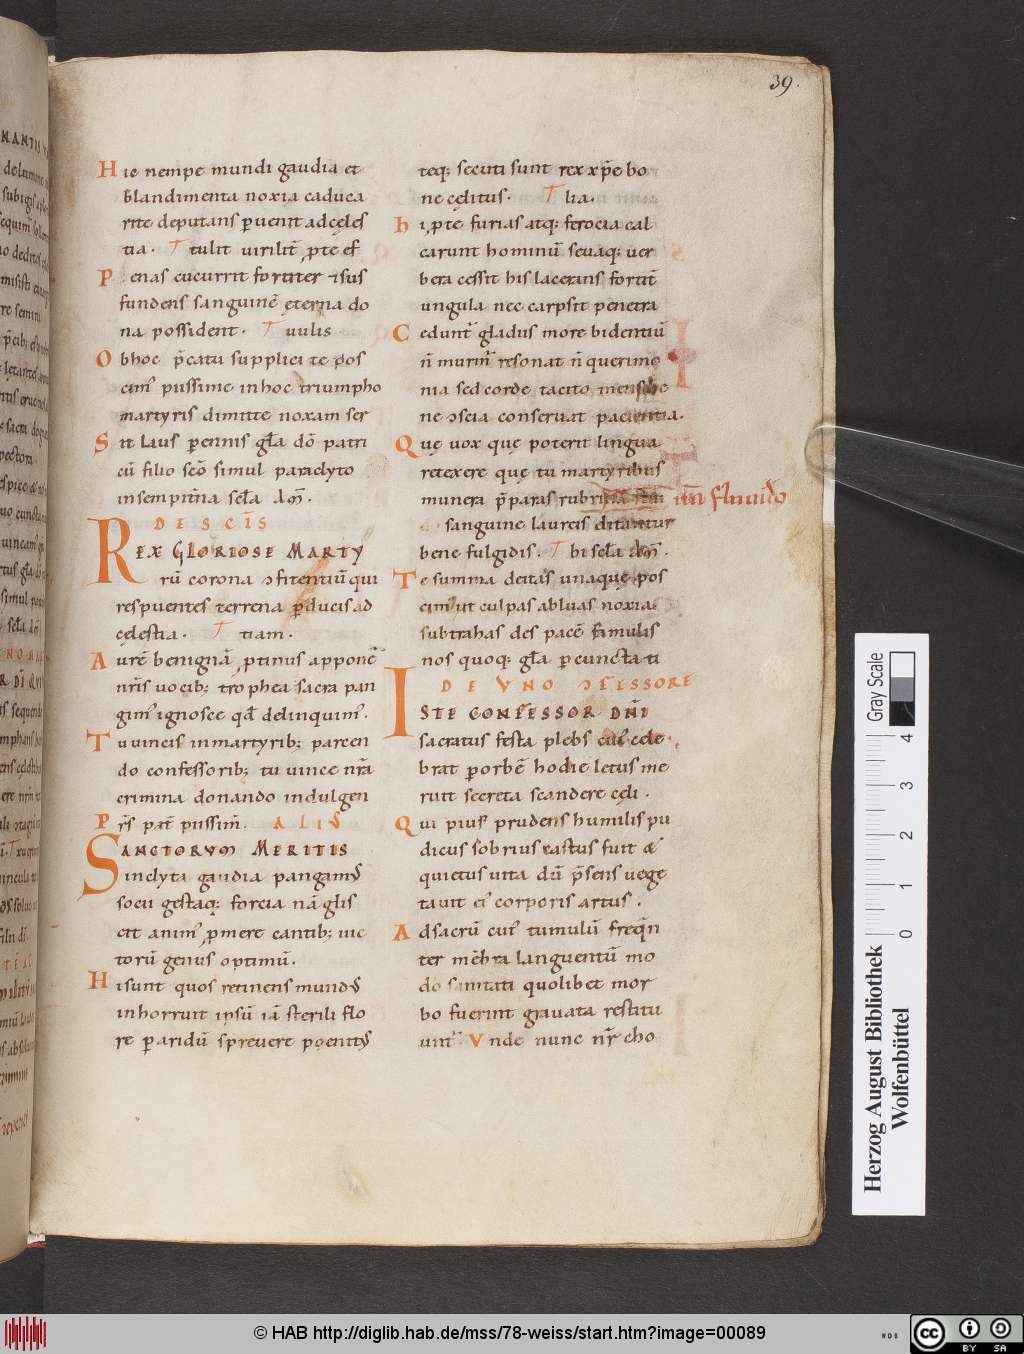 39.
Hic nempe mundi gaudia et
blandimenta noxia caduca
rite deputans puenit adcęleſ
tia. T tulit uirilit̄ pte eſ
Penas cucurrit fortiter & ſuſ
fundenſ sanguinē ęterna do
na possident. T uulis
Obhoc p̄catu ſupplici te poſ
cim' piiſſime inhoc triumpho
martyris dimitte noxam ſer
Sit lauſ pennis gl̄a dō patri
cū filio scō simul paraclyto
insempit̄na secl̄a AM̄.
DE SCĪS
REX GLORIOSE MARTY
rū corona ɔfitentiū qui
respuenteſ terrena pduciſ ad
cęleſtia. T tiam.
Aurē benignā ptinuſ apponē
nr̄is uocib; trophea sacra pan
gim' ignosce qd̄ delinquim'.
Tu uincis inmartyrib; parcen
do confessorib; tu uince nr̄a
crimina donando indulgen
Pr̄s pat̄ piiſſim̄. ALIŪ
SANCTORUM MERITIS
inclyta gaudia pangamuſ
socii gestaq; forcia nā gliſ
cit anim' pmere cantib; uic
torū genuſ optimū.
Hi sunt quoſ retinenſ mundꝰ
inhorruit ipsū iā ſterili flo
re paridū ſpreuere poenitꝰ
teq; secuti sunt rex xp̄e bo
ne cęlituſ. T lia.
hi, pte furiaſ atq; ferocia cal
carunt hominū ſeuaq; uer
bera ceſſit hiſ laceranſ fortit̄
ungula nec carpſit penetra
Cedunt' gladiiſ more bidentiū
n̄ murm' reſonat n̄ querimo
nia sed corde tacito menſ bene
ne ɔscia conseruat pacientia.
Quę uox quę poterit lingua
retexere quę tu martyribuſ
munera p̄paraſ rubri nā flui nā fluuido
sanguine laureis ditantur
bene fulgidis. T bi secl̄a AM̄.
Te summa deitaſ unaquę poſ
cim' ut culpaſ abluaſ noxia
subtrahaſ deſ pacē famuliſ
noſ quoq; gl̄a pcuncta ti
DE UNO ɔFESSORE
ISTE CONFESSOR DNĪ
sacratuſ feſta plebſ cui' cele
brat porbē hodie letuſ me
ruit ſecreta ſcandere cęli.
Qui piuſ prudenſ humiliſ pu
dicuſ ſobriuſ caſtuſ fuit &
quietuſ uita dū p̄senſ uege
tauit ei' corporiſ artuſ.
Adſacrū cui' tumulū freq̄n
ter mēbra languentū mo
do ſanitati quolibet mor
bo fuerint grauata reſtitu
unt' Vnde nunc nr̄ cho
Gray Scale
0 1 2 3 4
Herzog August Bibliothek
Wolfenbüttel
© HAB http://diglib.hab.de/mss/78-weiss/start.htm?image=00089
cc BY SA